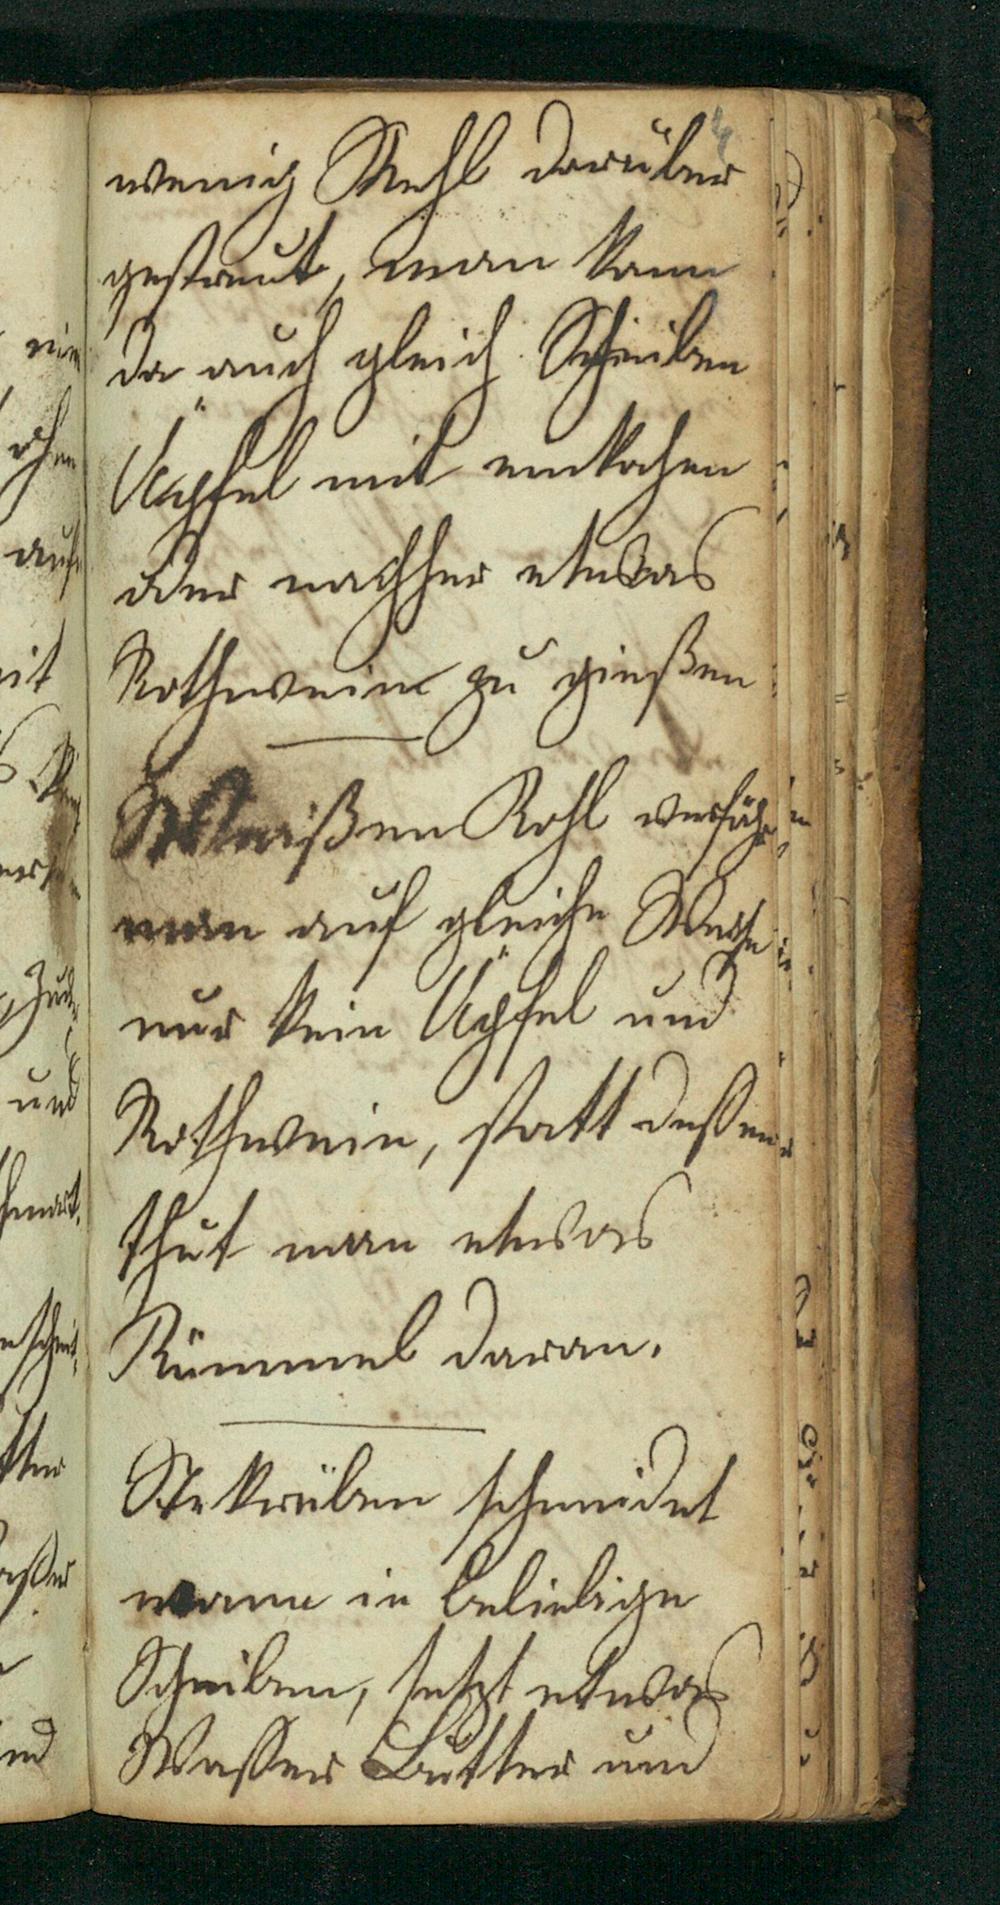 wenig Mehl darüber
gestreut, man kann
da auch gleich Scheiben
Äpfel mit einkochen
oder nachher etwas
Rothwein zu gießen
Weißen Kohl verfäh
man auf gleiche Weise
nur kein Äpfel und
Rothwein, statt deßen
thut man etwas
Kümmel daran.
Stekrüben schneidet
mann in beliebige
Scheiben, setzt etwas
Waßer Butter und